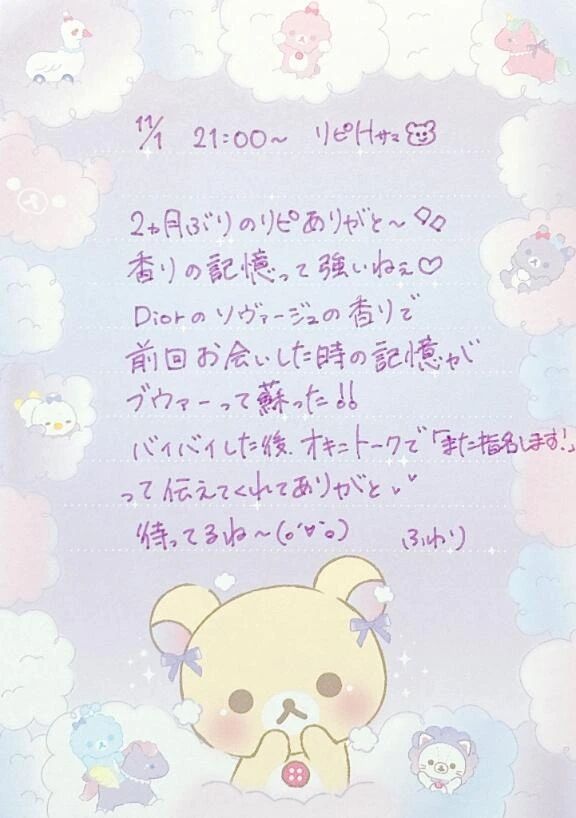 11/1 21:00～ リピHサマ
2ヵ月ぶりのリピありがと～
香りの記憶って強いねぇ♡
Diorのソヴァージュの香りで
前回お会いした時の記憶が
ブゥァーって蘇った!!
バイバイした後、オキニトークで「また指名します!」
って伝えてくれてありがと
待ってるね～(o'▽'o) ふわり